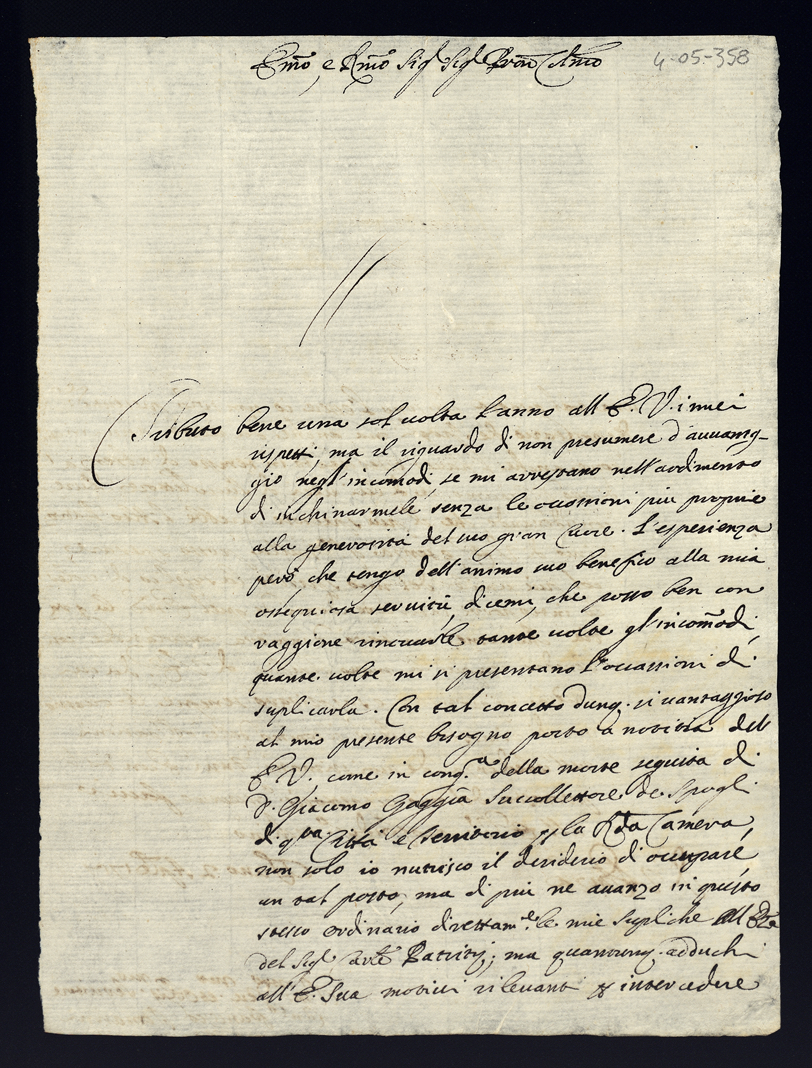 Em̃o, e Rm̃o Sig.r Sig.r Pron̄ Col.mo
4-05-358
Tributo bene una sol volta l'anno all E. V. i miei
rispetti, ma il riguardo di non presumere d'avvantag-
gio negl'incomodi, se mi arrestano nell'ardimento
di inchinarmele senza le occassioni più proprie
alla generosità del suo gran Cuore. L'esperienza
però, che tengo dell'animo suo benefico alla mia
ossequiosa servitù, dicemi, che posso ben con
raggione rinovarle tante volte gl'incom̄odi,
quante volte mi si presentano l'occassioni di
suplicarla. Con tal concetto dunq. sì vantaggioso
al mio presente bisogno porto a notitia dell
E. V. come in cong.a della morte seguita di
D. Giacomo Gaggia Succollettore de Spogli
di q.sta Città e Territorio p la Rda Camera,
non solo io nutrisco il desiderio di occupare
un tal posto, ma di più ne avanzo in questo
stesso ordinario direttam.te le mie supliche all
del Sig.r Patritij; ma quantunq. adduchi
all'E. Sua motivi rilevanti p intercedere